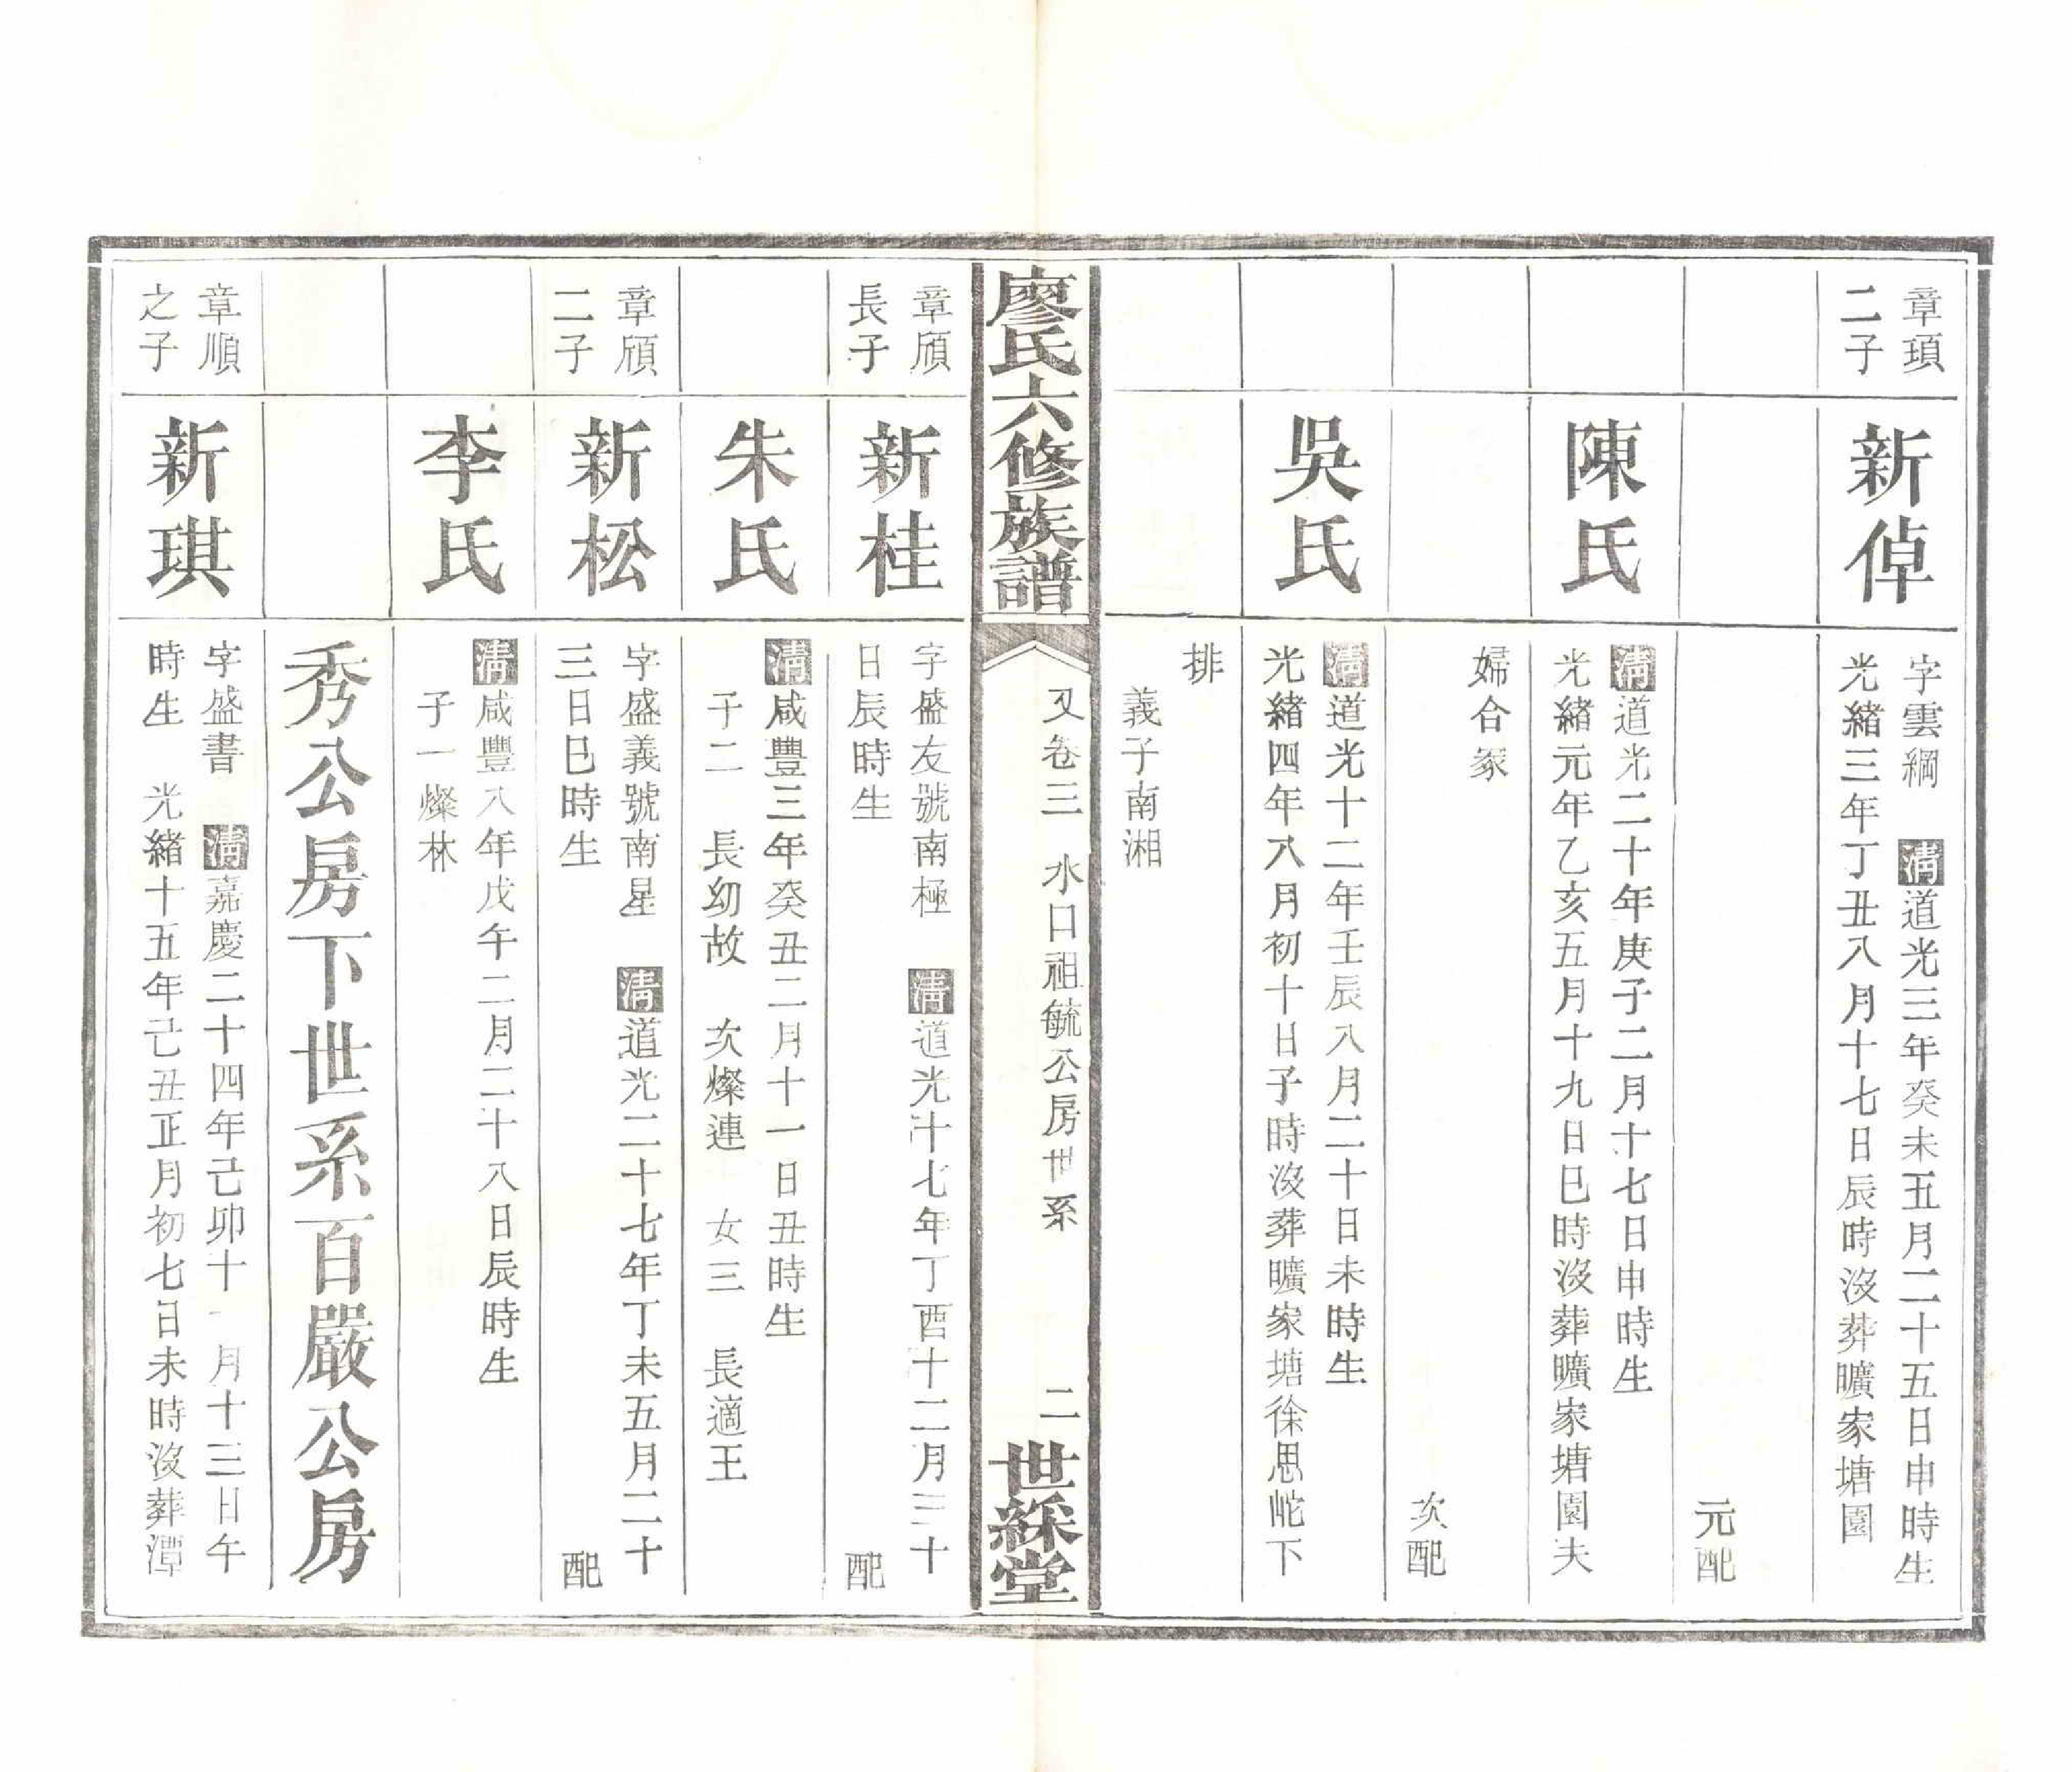 章頊
二子
新倬
字雲綱 清道光三年癸未五月二十五日申時生
光緒三年丁丑八月十七日辰時沒葬曠家塘園
元配
陳氏
清道光二十年庚子二月十七日申時生
光緒元年乙亥五月十九日巳時沒葬曠家塘園夫
婦合冢
次配
吳氏
清道光十二年壬辰八月二十日未時生
光緒四年八月初十日子時沒葬曠家塘徐思虵下
排
義子南湘
廖氏六修族譜
又卷三 水口祖毓公房世系
二
世綵堂
章頎
長子
新桂
字盛友號南極 清道光十七年丁酉十二月三十
日辰時生 配
朱氏
清咸豐三年癸丑二月十一日丑時生
子二 長幼故 次燦連 女三 長適王
章頎
二子
新松
字盛義號南星 清道光二十七年丁未五月二十
三日巳時生 配
李氏
清咸豐八年戊午二月二十八日辰時生
子一燦林
秀公房下世系百嚴公房
章順
之子
新琪
字盛書 清嘉慶二十四年己卯十一月十三日午
時生 光緒十五年己丑正月初七日未時沒葬潭